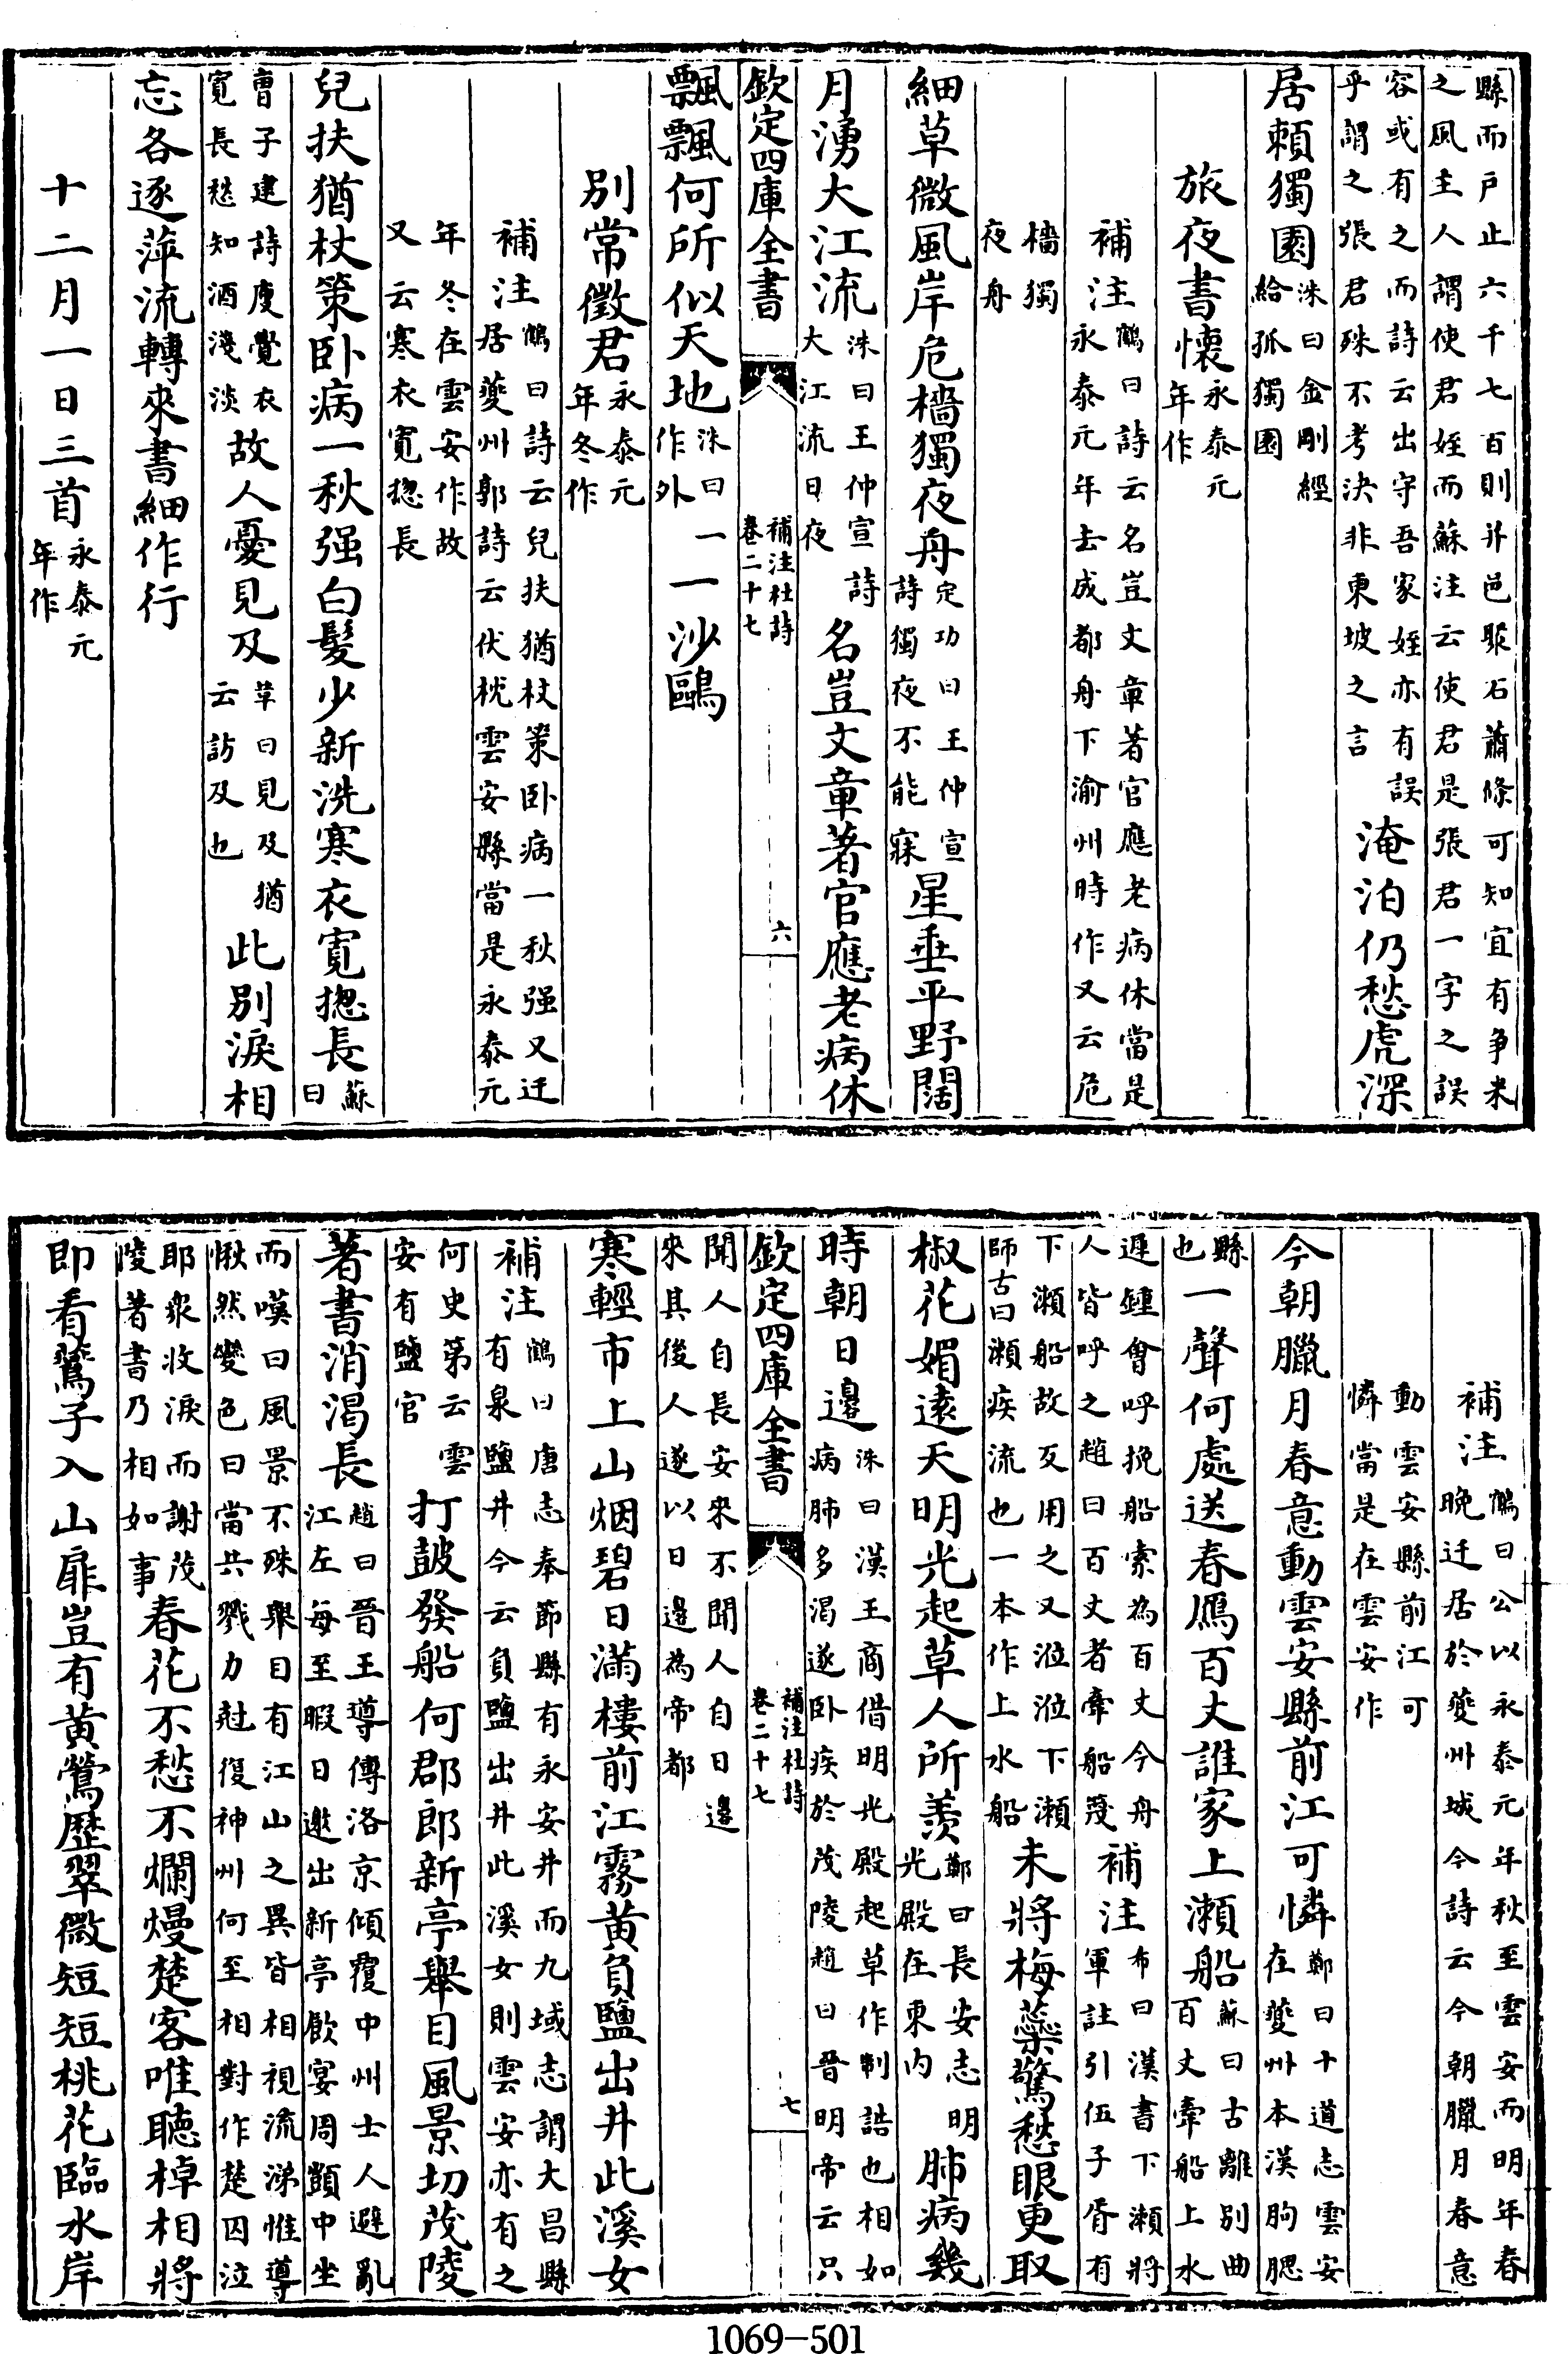 縣而戶止六千七百則井邑聚石蕭條可知宜有争来
之風主人謂使君姪而蘇注云使君是張君一字之誤
容或有之而詩云出守吾家姪亦有誤
乎謂之張君殊不考決非東坡之言
淹泊仍愁虎深
居頼獨園
洙曰金剛經
給孤獨園
旅夜書懐
永泰元
年作
補注
鶴曰詩云名豈文章著官應老病休當是
永泰元年去成都舟下渝州時作又云危
檣獨
夜舟
細草微風岸危檣獨夜舟
定功曰王仲宣
詩獨夜不能寐
星垂平野闊
月湧大江流
洙曰王仲宣詩
大江流日夜
名豈文章著官應老病休
欽定四庫全書
補注杜詩
卷二十七
六
飄飄何所似天地
洙曰一
作外
一沙鷗
別常徵君
永泰元
年冬作
補注
鶴曰詩云兒扶猶杖策卧病一秋强又迁
居夔州郭詩云伏枕雲安縣當是永泰元
年冬在雲安作故
又云寒衣寛揔長
兒扶猶杖策卧病一秋强白髮少新洗寒衣寛揔長
蘇
曰
曹子建詩庋覺衣
寛長愁知酒淺淡
故人憂見及
草曰見及猶
云訪及也
此別淚相
忘各逐萍流轉來書細作行
十二月一日三首
永泰元
年作
補注
鶴曰公以永泰元年秋至雲安而明年春
晚迁居於夔州城今詩云今朝臘月春意
動雲安縣前江可
憐當是在雲安作
今朝臘月春意動雲安縣前江可憐
鄭曰十道志雲安
在夔州本漢朐䏰
縣
也
一聲何處送春鴈百丈誰家上瀨船
蘇曰古離別曲
百丈牽船上水
遲鍾會呼挽船索為百丈今舟
人皆呼之趙曰百丈者牽船篾
補注
布曰漢書下瀨將
軍註引伍子胥有
下瀨船故反用之又㳫㳫下瀨
師古曰瀨疾流也一本作上水船
未將梅蘂驚愁眼更取
椒花媚逺天明光起草人所羨
鄭曰長安志明
光殿在東内
肺病幾
時朝日邊
洙曰漢王商借明光殿起草作制誥也相如
病肺多渴遂卧疾於茂陵趙曰晉明帝云只
欽定四庫全書
補注杜詩
卷二十七
七
聞人自長安來不聞人自日邊
來其後人遂以日邊為帝都
寒輕市上山烟碧日滿樓前江霧黄負鹽出井此溪女
補注
鶴曰唐志奉節縣有永安井而九域志謂大昌縣
有泉鹽井今云負鹽出井此溪女則雲安亦有之
何史第云雲
安有鹽官
打鼓發船何郡郎新亭舉目風景切茂陵
著書消渴長
趙曰晉王導傳洛京傾覆中州士人避亂
江左每至暇日邀出新亭飲宴周顗中坐
而嘆曰風景不殊舉目有江山之異皆相視流涕惟導
愀然變色曰當共戮力尅復神州何至相對作楚囚泣
耶衆收淚而謝茂
陵著書乃相如事
春花不愁不爛熳楚客唯聽棹相將
即看鷰子入山扉豈有黄鶯歴翠微短短桃花臨水岸
1069-501